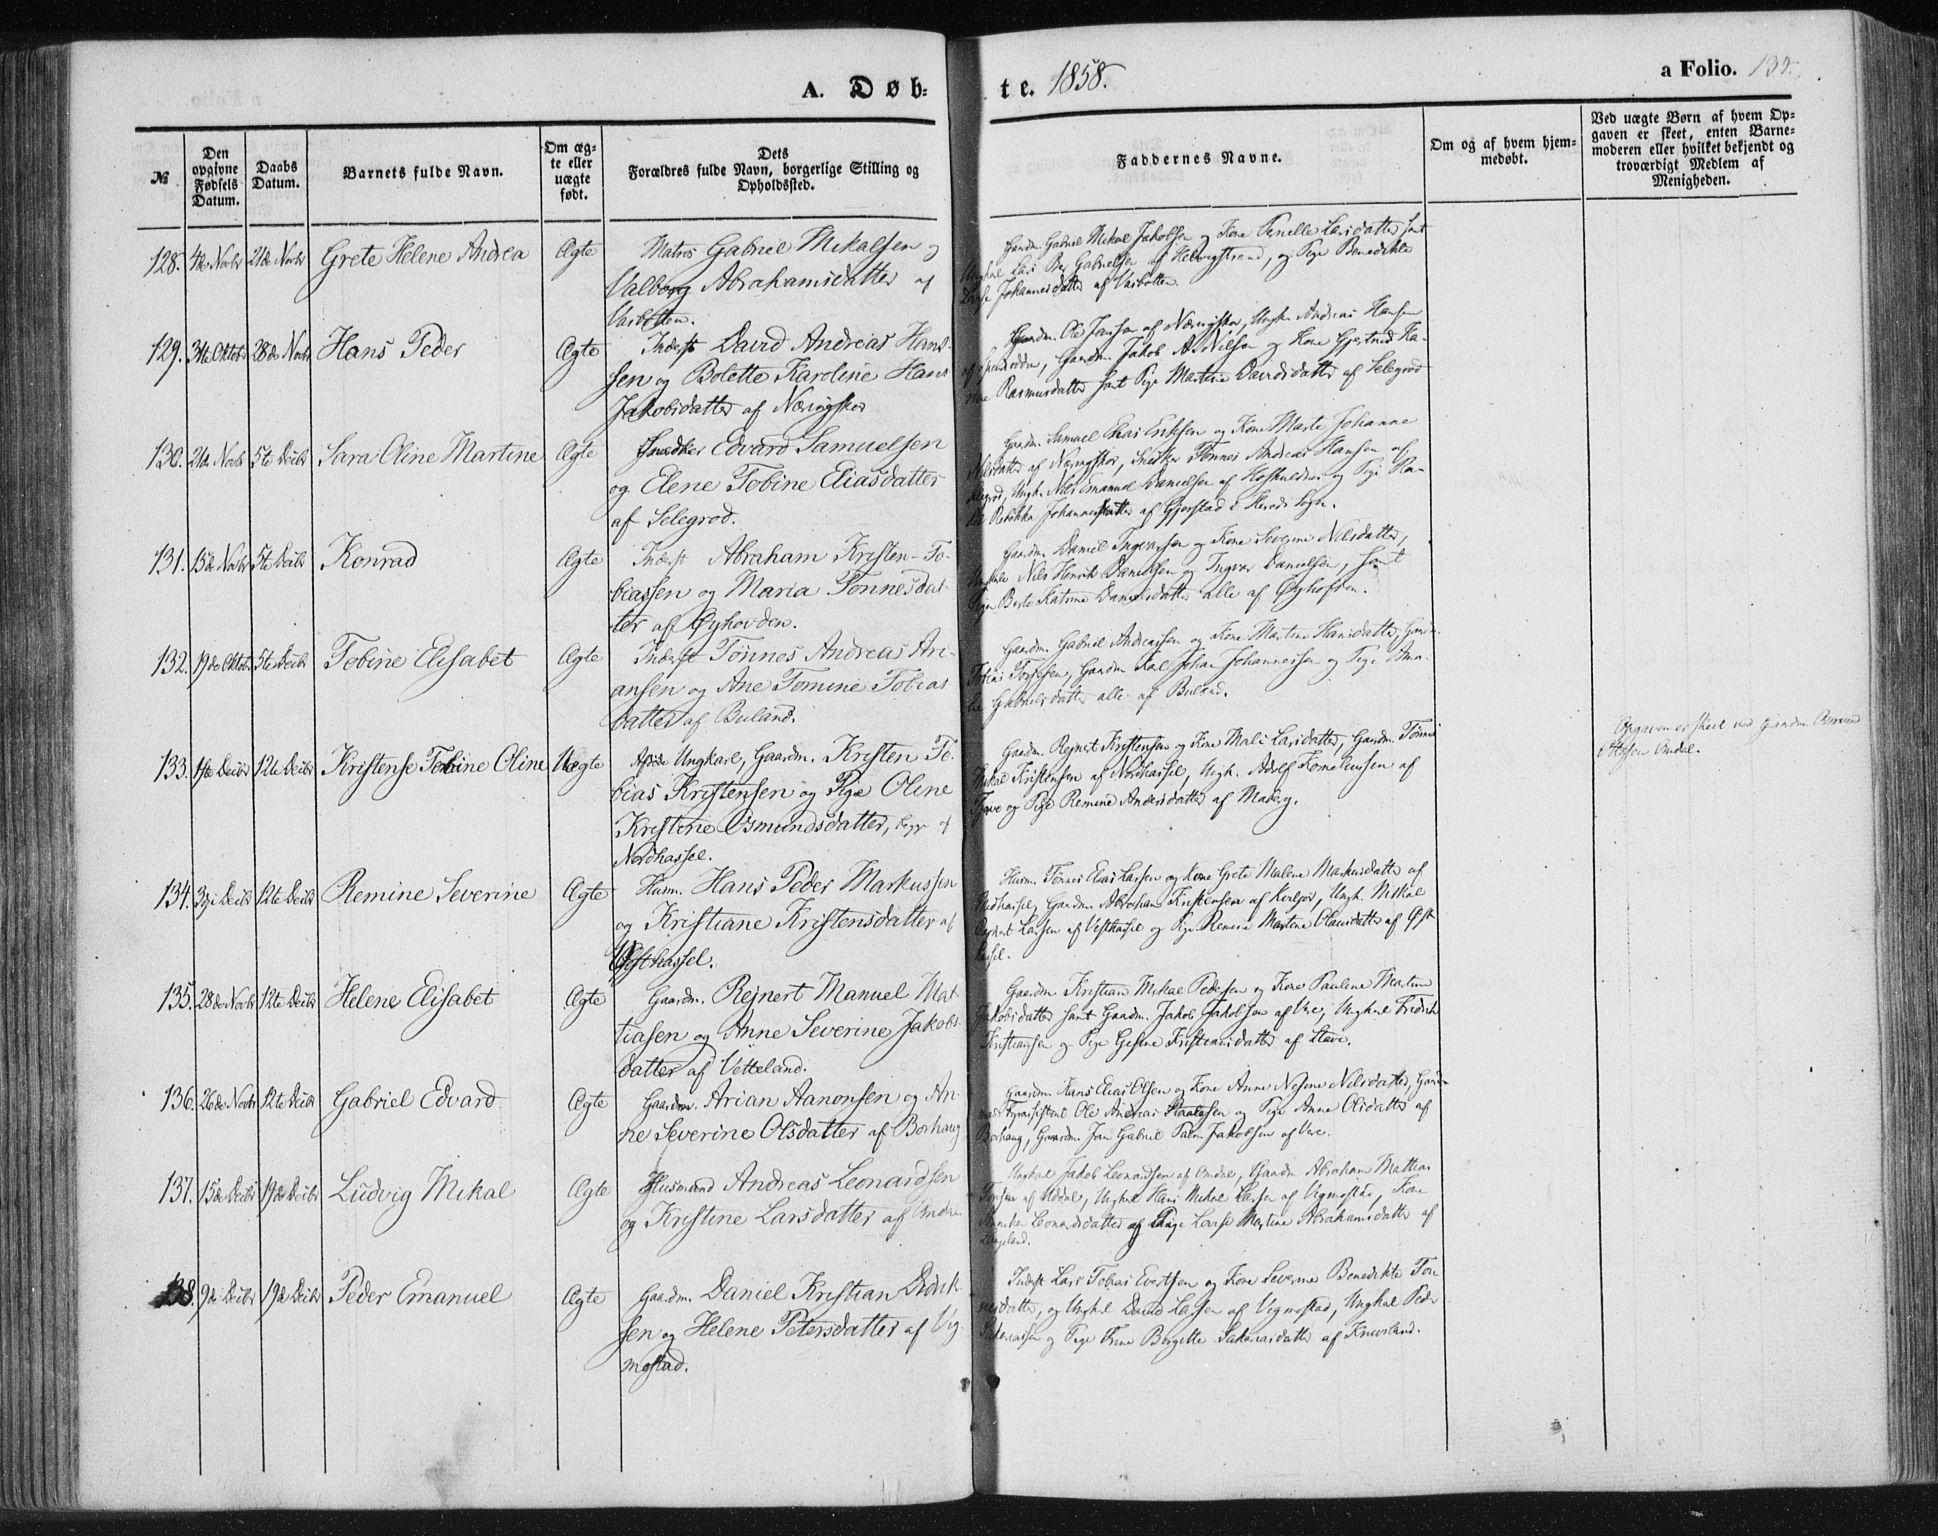 A. Døb-
te. 1858.
a Folio. 135.
No
Den opgivne Fødsels Datum.
Daabs Datum.
Barnets fulde Navn.
Om ægte eller uægte født.
Dets Forældres fulde Navn, borgerlige Stilling og Opholdssted.
Faddernes Navne.
Om og af hvem hjemmedøbt.
Ved uægte Børn af hvem Opgaven er skeet, enten Barnemoderen eller hvilket bekjendt og troværdigt Medlem af Menigheden.
128. 4de Novbr 21de Novbr Grete Helene Andrea Ægte Matros Gabriel Mikalsen og
Valborg Abrahamsdatter af
Varbotten.
Gaardm. Gabriel Mikal Jakobsen og Kone Pernelle Larsdatter samt
Ungkal Lars Gabrielsen af Helvigstrand, og Pige Benedikte
Johannesdatter af Varbotten.
129. 31te Oktobr 28de Novbr Hans Peder Ægte Inderst David Andreas Han-
sen og Bolette Karoline Hans
Jakobsdatter af Næringskor
Gaardm. Ole Jansen af Næringskor, Ungk. Andreas Hansen
Gaardm. Jakob A. Nilsen og Kone Gjertrud Ka-
Rasmusdatter samt Pige Martine Davidsdatter af Selegrod
130. 21de Novbr 5te Decbr Sara Oline Martine Ægte Snedker Edvard Samuelsen
og Elene Tobine Eliasdatter
af Selegrod.
Gaardm. Samuel Elias Eriksen og Kone Marte Johanne
Nilsdatter af Næringskor, Snedker Tønnes Andreas Hansen af
Selegrod, Ungk. Nils Emanuel Danielsen af Høskuldnes og Pige Ra-
Rebekka Johannesdatter af Gjerstad i Herads Sogn.
131. 15de Novbr 5te Decbr Konrad Ægte Inderst Abraham Kristen-To-
biassen og Maria Tønnesdat-
ter af Øyhovden.
Gaardm. Daniel Ingvarsen og Kone Severine Nilsdatter,
Ungkarle Nils Henrik Danielsen og Ingvar Danielsen, samt
Pigen Berte Katrine Danielsdatter alle af Øyhofden.
132. 19de Oktobr 5te Decbr Tobine Elisabet Ægte Inderst Tønnes Andreas Ari-
ansen og Ane Tomine Tobias
datter af Buland.
Gaardm. Gabriel Andreassen og Kone Martine Hansdatter, Gaardm.
Tobias Torgesen, Gaardm Karl Johan Johannessen og Pige Ama-
lie Gabrielsdatter alle af Buland.
133. 1ste Decbr 12te Decbr Kristense Tobine Oline Uægte Ungkarl, Gaardm. Kristen To-
bias Kristensen og Pige Oline
Kristine Osmundsdatter, begge af
Nordhassel.
Gaardm. Rejnert Kristensen og Kone Mali Larsdatter, Gaardm. Tønnes
Mikal Kristensen af Nordhassel, Ungk. Adolf Korneliussen af
Tjørve og Pige Remine Andersdatter af Maberg.
Opgaven er skeet ved Gaardm. Osmund
Ottesen Omdal.
134. 3die Decbr 12te Decbr Remine Severine Ægte Husm. Hans Peder Markussen
og Kristiane Kristensdatter af
Vesthassel.
Husm. Tønnes Elias Larsen og Kone Grete Malene Markusdatter af
Midhassel, Gaardm. Abraham Kristensen af Kviljo, Ungk. Mikal
Rejnert Larsen af Vesthassel og Pige Remine Martine Olausdatter af Øst-
hassel.
135. 28de Novbr 12te Decbr Helene Elisabet Ægte Gaardm. Rejnert Manuel Mat-
tiasen og Anne Severine Jakobs-
datter af Vetteland.
Gaardm. Kristian Mikal Pedersen og Kone Pauline Martine
Jakobsdatter samt Gaardm. Jakob Jakobsen af Vere, Ungkarl Fredrik
Kristiansen og Pige Gesine Kristiansdatter af Stave.
136. 26de Novbr 12te Decbr Gabriel Edvard Ægte Gaardm. Arian Aanonsen og An-
ne Severine Olsdatter af Borhaug
Gaardm. Hans Elias Olsen og Kone Anne Nesine Nilsdatter, Gaard-
mand Fyrassistent Ole Andreas Staalesen og Pige Anne Olsdatter af
Borhaug, Gaardm. Jon Gabriel Palm Jakobsen af Vere.
137. 15de Decbr 19de Decbr Ludvig Mikal Ægte Husmand Andreas Leonardsen
og Kristine Larsdatter af Omdal
Ungkal Jakob Leonardsen af Omdal, Gaardm Abraham Mattias
Tønsen af Uddal, Ungkal Hans Mikal Larsen af Vigmostad, Kone
Leonardsdatter og Pige Lovise Martine Abrahamsdatter af
Langeland.
138. 9de Decbr 19de Decbr Peder Emanuel Ægte Gaardm. Daniel Kristian Didrik-
sen og Helene Petersdatter af Vig-
mostad.
Inderst Lars Tobias Evertsen og Kone Severine Benedikte Tøn-
nesdatter, og Ungkal David Larsen af Vigmostad, Ungkal Peder
Sakariassen og Pige Trine Bergitte Sakariasdatter af Knivsland.